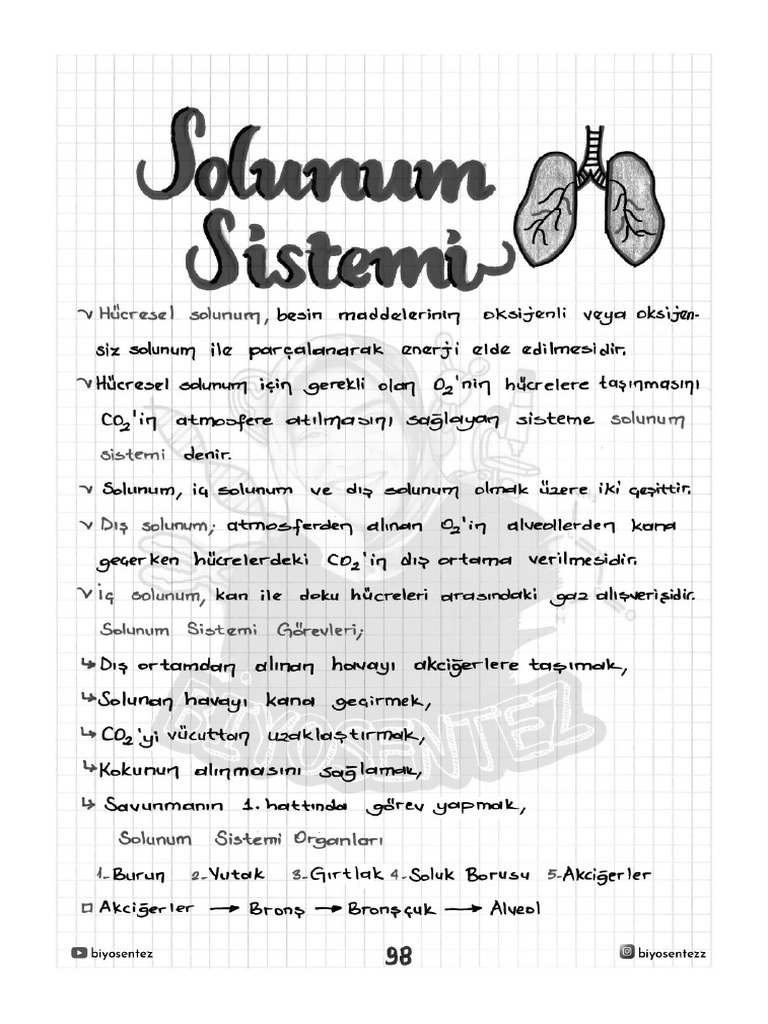 Solunum
Sistemi
Hücresel solunum, besin maddelerinin oksijenli veya oksijen-
siz solunum ile parçalanarak enerji elde edilmesidir.
Hücresel solunum için gerekli olan O₂'nin hücrelere taşınmasını
CO₂'in atmosfere atılmasını sağlayan sisteme solunum
sistemi denir.
Solunum, iç solunum ve dış solunum olmak üzere iki çeşittir.
Dış solunum; atmosferden alınan O₂'in alveollerden kana
geçerken hücrelerdeki CO₂'in dış ortama verilmesidir.
İç solunum, kan ile doku hücreleri arasındaki gaz alışverişidir.
Solunum Sistemi Görevleri;
↳ Dış ortamdan alınan havayı akciğerlere taşımak,
↳ Solunan havayı kana geçirmek,
↳ CO₂'yi vücuttan uzaklaştırmak,
↳ Kokunun alınmasını sağlamak,
↳ Savunmanın 1. hattında görev yapmak,
Solunum Sistemi Organları
1-Burun 2-Yutak 3-Gırtlak 4-Soluk Borusu 5-Akciğerler
□ Akciğerler → Bronş → Bronşçuk → Alveol
BİYOSENTEZ
biyosentez 98 biyosentezz